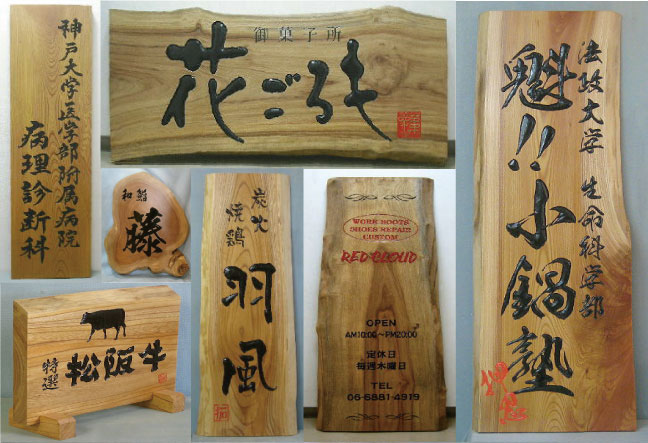 神戸大学医学部附属病院
病理診断科
御菓子所
花ごろも
和鮨
藤
特選
松阪牛
炭火
焼鶏
羽風
WORK BOOTS
SHOES REPAIR
CUSTOM
RED CLOUD
OPEN
AM10:00~PM20:00
定休日
毎週木曜日
TEL
06-6881-4919
法政大学 生命科学部
魁!!小鍋塾